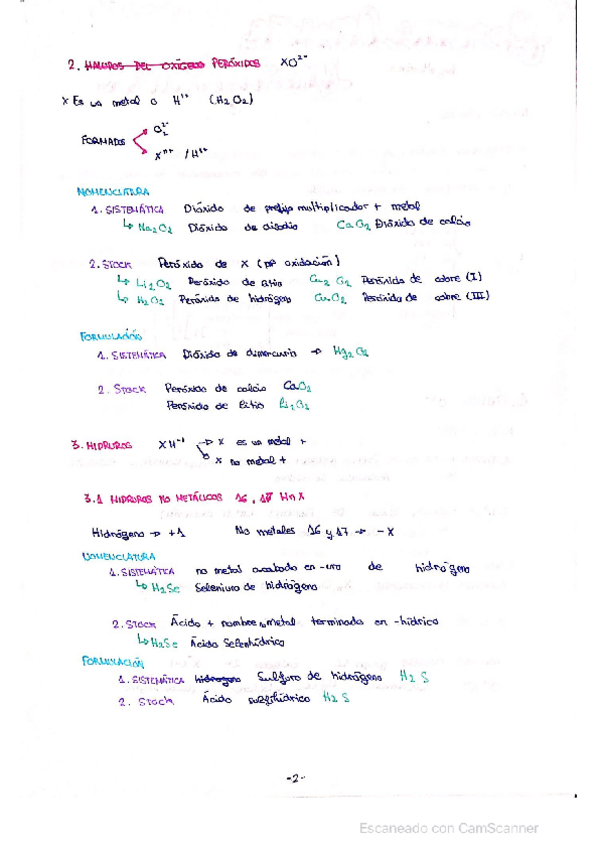 2. HALUROS DEL OXÍGENO PERÓXIDOS XO²⁻
X Es un metal o H¹⁺ (H₂O₂)
FORMADOS
O₂²⁻
Xⁿ⁺ / H¹⁺
NOMENCLATURA
1. SISTEMÁTICA Dióxido de prefijo multiplicador + metal
↳ Na₂O₂ Dióxido de disodio CaO₂ Dióxido de calcio
2. STOCK Peróxido de X (nº oxidación)
↳ Li₂O₂ Peróxido de litio Cu₂O₂ Peróxido de cobre (I)
↳ H₂O₂ Peróxido de hidrógeno CuO₂ Peróxido de cobre (III)
FORMULACIÓN
1. SISTEMÁTICA Dióxido de dimercurio → Hg₂O₂
2. Stock Peróxido de calcio CaO₂
Peróxido de litio Li₂O₂
3. HIDRUROS XH⁻¹ → X es un metal +
→ X no metal +
3.1 HIDRUROS NO METÁLICOS 16, 17 HnX
Hidrógeno → +1 No metales 16 y 17 → - X
NOMENCLATURA
1. SISTEMÁTICA no metal acabado en -uro de hidrógeno
↳ H₂Se Seleniuro de hidrógeno
2. STOCK Ácido + nombre metal terminado en -hídrico
↳ H₂Se Ácido Selenhídrico
FORMULACIÓN
1. SISTEMÁTICA hidrogeno Sulfuro de hidrógeno H₂S
2. Stock Ácido sulfhídrico H₂S
-2-
Escaneado con CamScanner